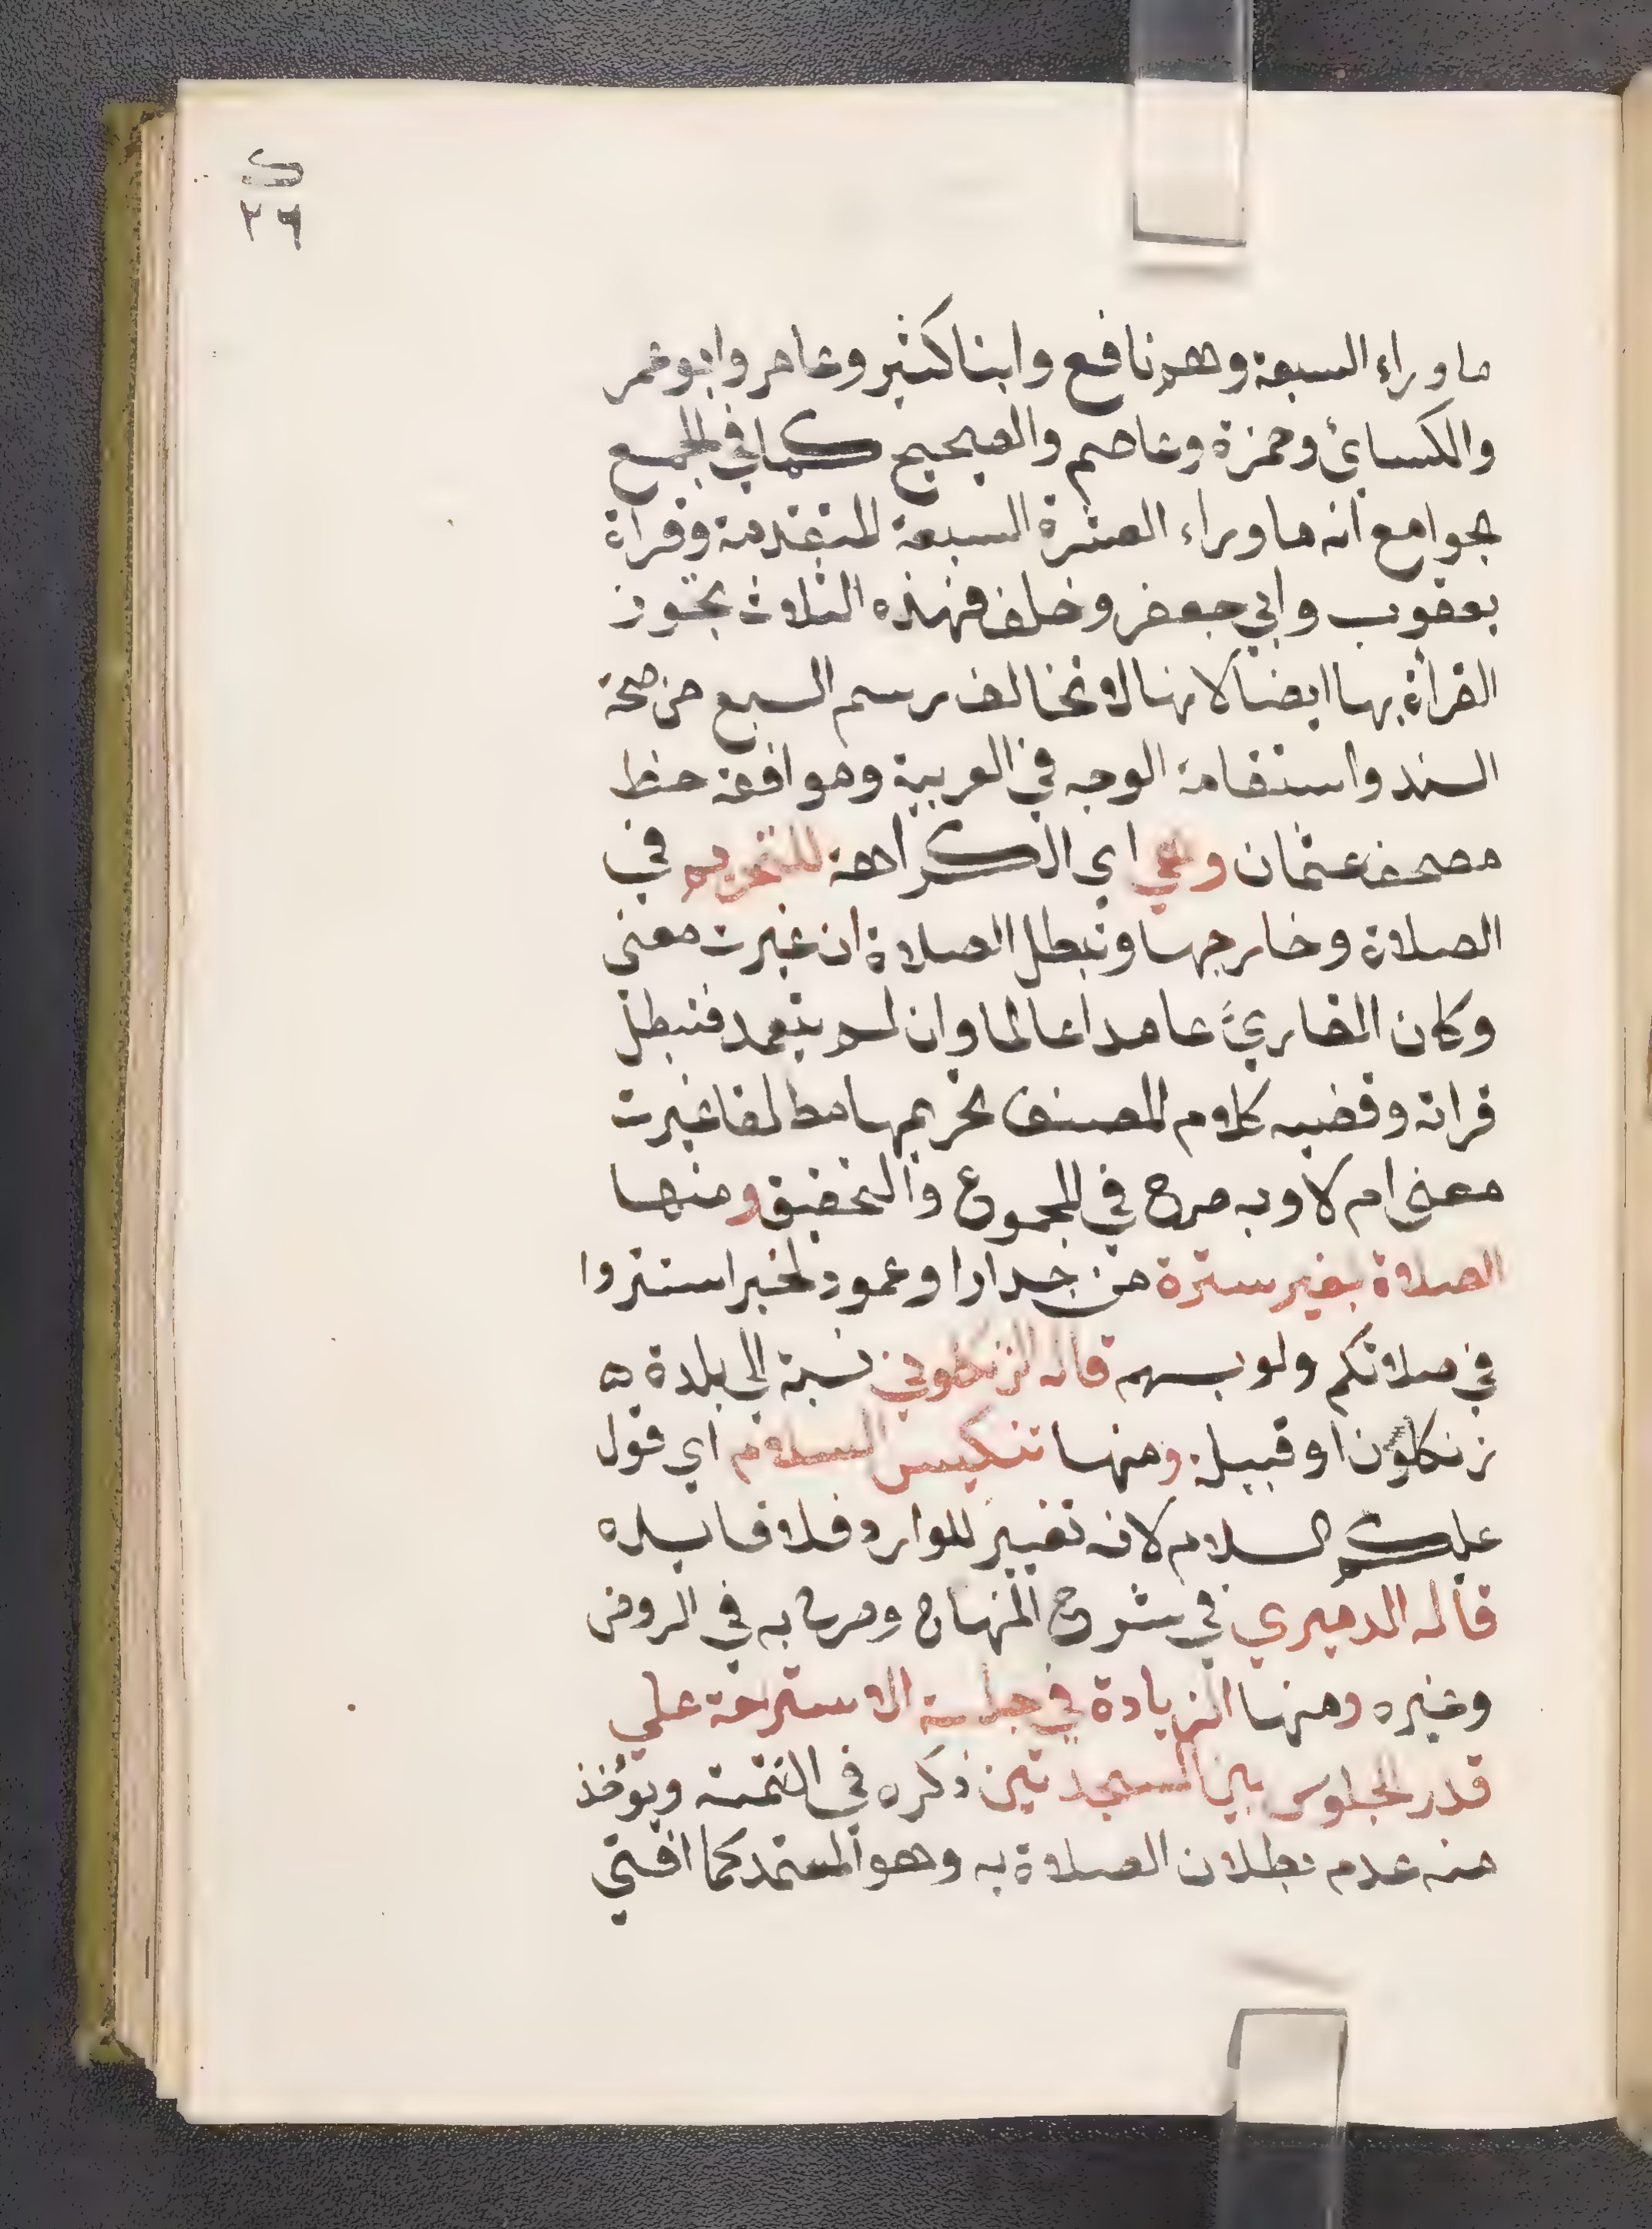 ٢٦
ما وراء السبعة وهم نافع وابنا كثير وعامر وابو عمر
والكسائ وحمزة وعاصم والصحيح كما في الجمع
جوامع انه ما وراء العشرة السبعة المتقدمة وقراة
يعقوب وابي جعفر وخلف فهذه الثلاث تجوز
القرأة بها ايضا لانها لا تخالف رسم السبع من صحة
السند واستقامة الوجه في العربية وموافقة خط
مصحف عثمان وهي اي الكراهة للتحريم في
الصلاة وخارجها وتبطل الصلاة ان غيرت معني
وكان القارئ عامدا عالما وان لم يتعمد فتبطل
قراته وقضيه كلام المصنف تحريمها مطلقا غيرت
معنى ام لا وبه صرح في المجموع والتحقيق ومنها
الصلاة بغير سترة من جدار او عمود لخبر استتروا
في صلاتكم ولو بسهم قاله الزنكلوني نسبة الي بلدة ه
زنكلون او قبيله ومنها تنكيس السلام اي قول
عليكم السلام لانه تغيير للوارد فلا فائده
قاله الدميري في شرح المنهاج وصرح به في الروض
وغيره ومنها الزيادة في جلسة الاستراحة علي
قدر الجلوس بين السجدتين ذكره في التتمة ويؤخذ
منه عدم بطلان الصلاة به وهو المعتمد كما افتي